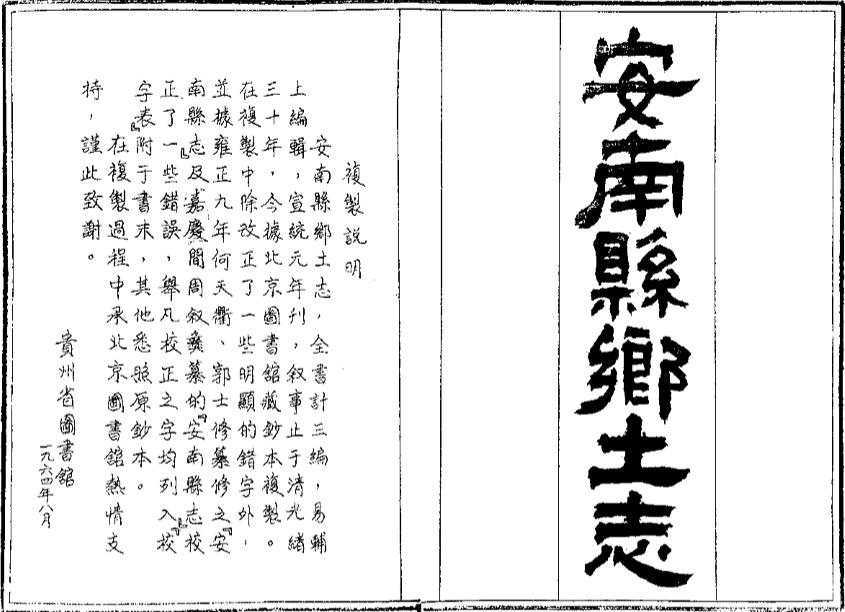 安南縣鄉土志
複製説明
安南縣鄉土志，全書計三編，易輔
上編輯，宣統元年刊，叙事止于清光緒
三十年，今據北京圖書館藏鈔本複製。
在複製中除改正了一些明顯的錯字外，
並據雍正九年何天衢、郭士修纂修之『安
南縣志』及嘉慶間周叙彝纂的『安南縣志』校
正了一些錯誤，舉凡校正之字均列入『校
字表』附于書末，其他悉照原鈔本。
在複製過程中承北京圖書館熱情支
持，謹此致謝。
貴州省圖書館
一九六四年八月